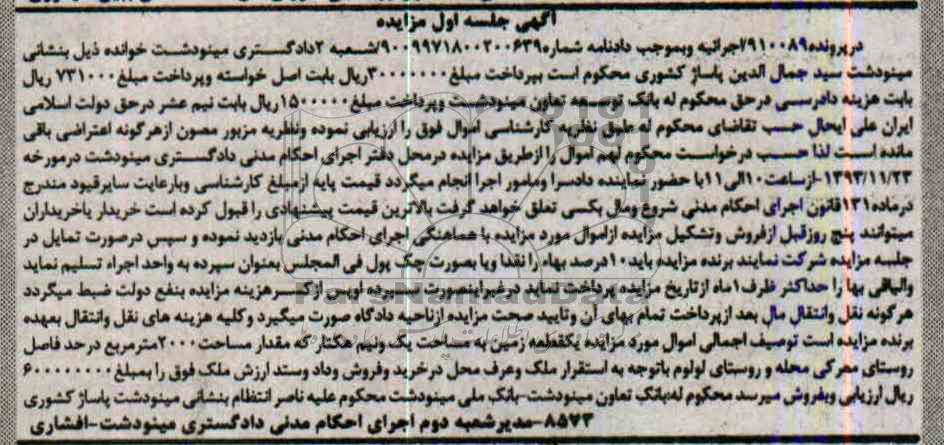 آگهی جلسه اول مزایده
درپرونده۹۱۰۰۸۹/اجرائیه وبموجب دادنامه شماره۹۰۰۹۹۷۱۸۰۰۲۰۰۶۳۹/شعبه ۲دادگستری مینودشت خوانده ذیل بنشانی
مینودشت سید جمال الدین پاساژ کشوری محکوم است بپرداخت مبلغ۳۰۰۰۰۰۰۰ریال بابت اصل خواسته وپرداخت مبلغ۷۳۱۰۰۰ ریال
بابت هزینه دادرسی درحق محکوم له بانک توسعه تعاون مینودشت وپرداخت مبلغ۱۵۰۰۰۰۰ریال بابت نیم عشر درحق دولت اسلامی
ایران علی ایحال حسب تقاضای محکوم له طبق نظریه کارشناسی اموال فوق را ارزیابی نموده ونظریه مزبور مصون ازهرگونه اعتراضی باقی
مانده است لذا حسب درخواست محکوم لهم اموال را ازطریق مزایده درمحل دفتر اجرای احکام مدنی دادگستری مینودشت درمورخه
۱۳۹۳/۱۱/۲۳-ازساعت۱۰الی۱۱با حضور نماینده دادسرا ومامور اجرا انجام میگردد قیمت پایه ازمبلغ کارشناسی وبارعایت سایرقیود مندرج
درماده۱۳۱قانون اجرای احکام مدنی شروع ومال بکسی تعلق خواهد گرفت بالاترین قیمت پیشنهادی را قبول کرده است خریدار یاخریداران
میتوانند پنج روزقبل ازفروش وتشکیل مزایده ازاموال مورد مزایده با هماهنگی اجرای احکام مدنی بازدید نموده و سپس درصورت تمایل در
جلسه مزایده شرکت نمایند برنده مزایده باید۱۰درصد بهاء را نقدا ویا بصورت چک پول فی المجلس بعنوان سپرده به واحد اجراء تسلیم نماید
والباقی بها را حداکثر ظرف۱ماه ازتاریخ مزایده پرداخت نماید درغیراینصورت سپرده اوپس ازکسرهزینه مزایده بنفع دولت ضبط میگردد
هرگونه نقل وانتقال مال بعد ازپرداخت تمام بهای آن وتایید صحت مزایده ازناحیه دادگاه صورت میگیرد وکلیه هزینه های نقل وانتقال بعهده
برنده مزایده است توصیف اجمالی اموال مورد مزایده یکقطعه زمین به مساحت یک ونیم هکتار که مقدار مساحت۲۰۰۰مترمربع درحد فاصل
روستای معرکی محله و روستای لولوم باتوجه به استقرار ملک وعرف محل درخرید وفروش وداد وستد ارزش ملک فوق را بمبلغ۶۰۰۰۰۰۰۰۰
ریال ارزیابی وبفروش میرسد محکوم له:بانک تعاون مینودشت-بانک ملی مینودشت محکوم علیه ناصر انتظام بنشانی مینودشت پاساژ کشوری
۸۵۷۳-مدیرشعبه دوم اجرای احکام مدنی دادگستری مینودشت-افشاری
ParsNamadData